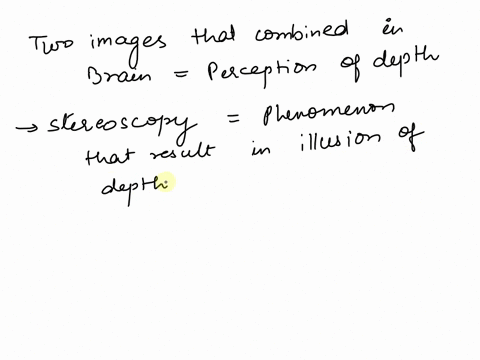 Two images that combined in
Brain = Perception of depth
→ stereoscopy = Phenomenon
that result in illusion of
depth.